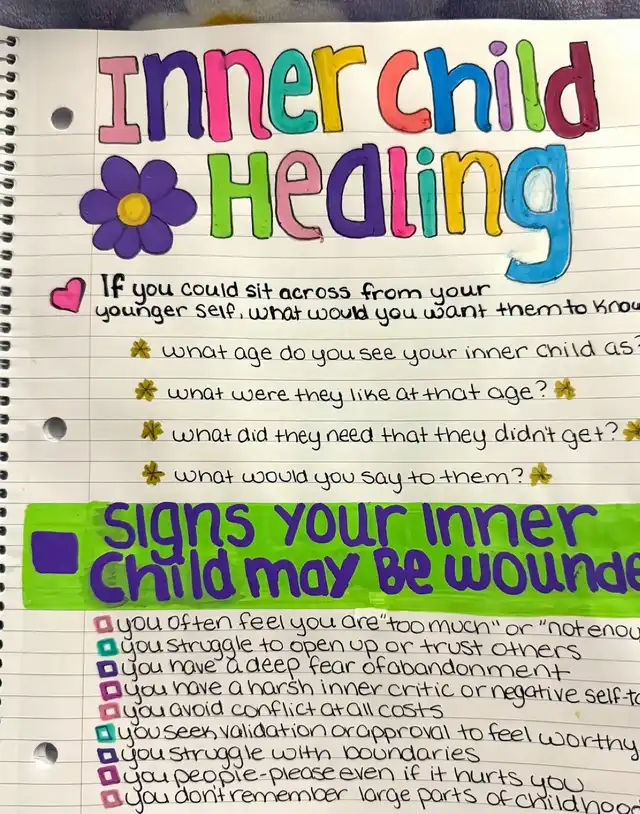 Inner child
Healing
If you could sit across from your
younger self, what would you want them to know
what age do you see your inner child as?
what were they like at that age?
what did they need that they didn't get?
what would you say to them?
Signs your Inner
Child may Be wounde
you often feel you are "too much" or "not enou
you struggle to open up or trust others
you have a deep fear of abandonment
you have a harsh inner critic or negative self-ta
you avoid conflict at all costs
you seek validation or approval to feel worthy
you struggle with boundaries
you people-please even if it hurts you
you don't remember large parts of childhood